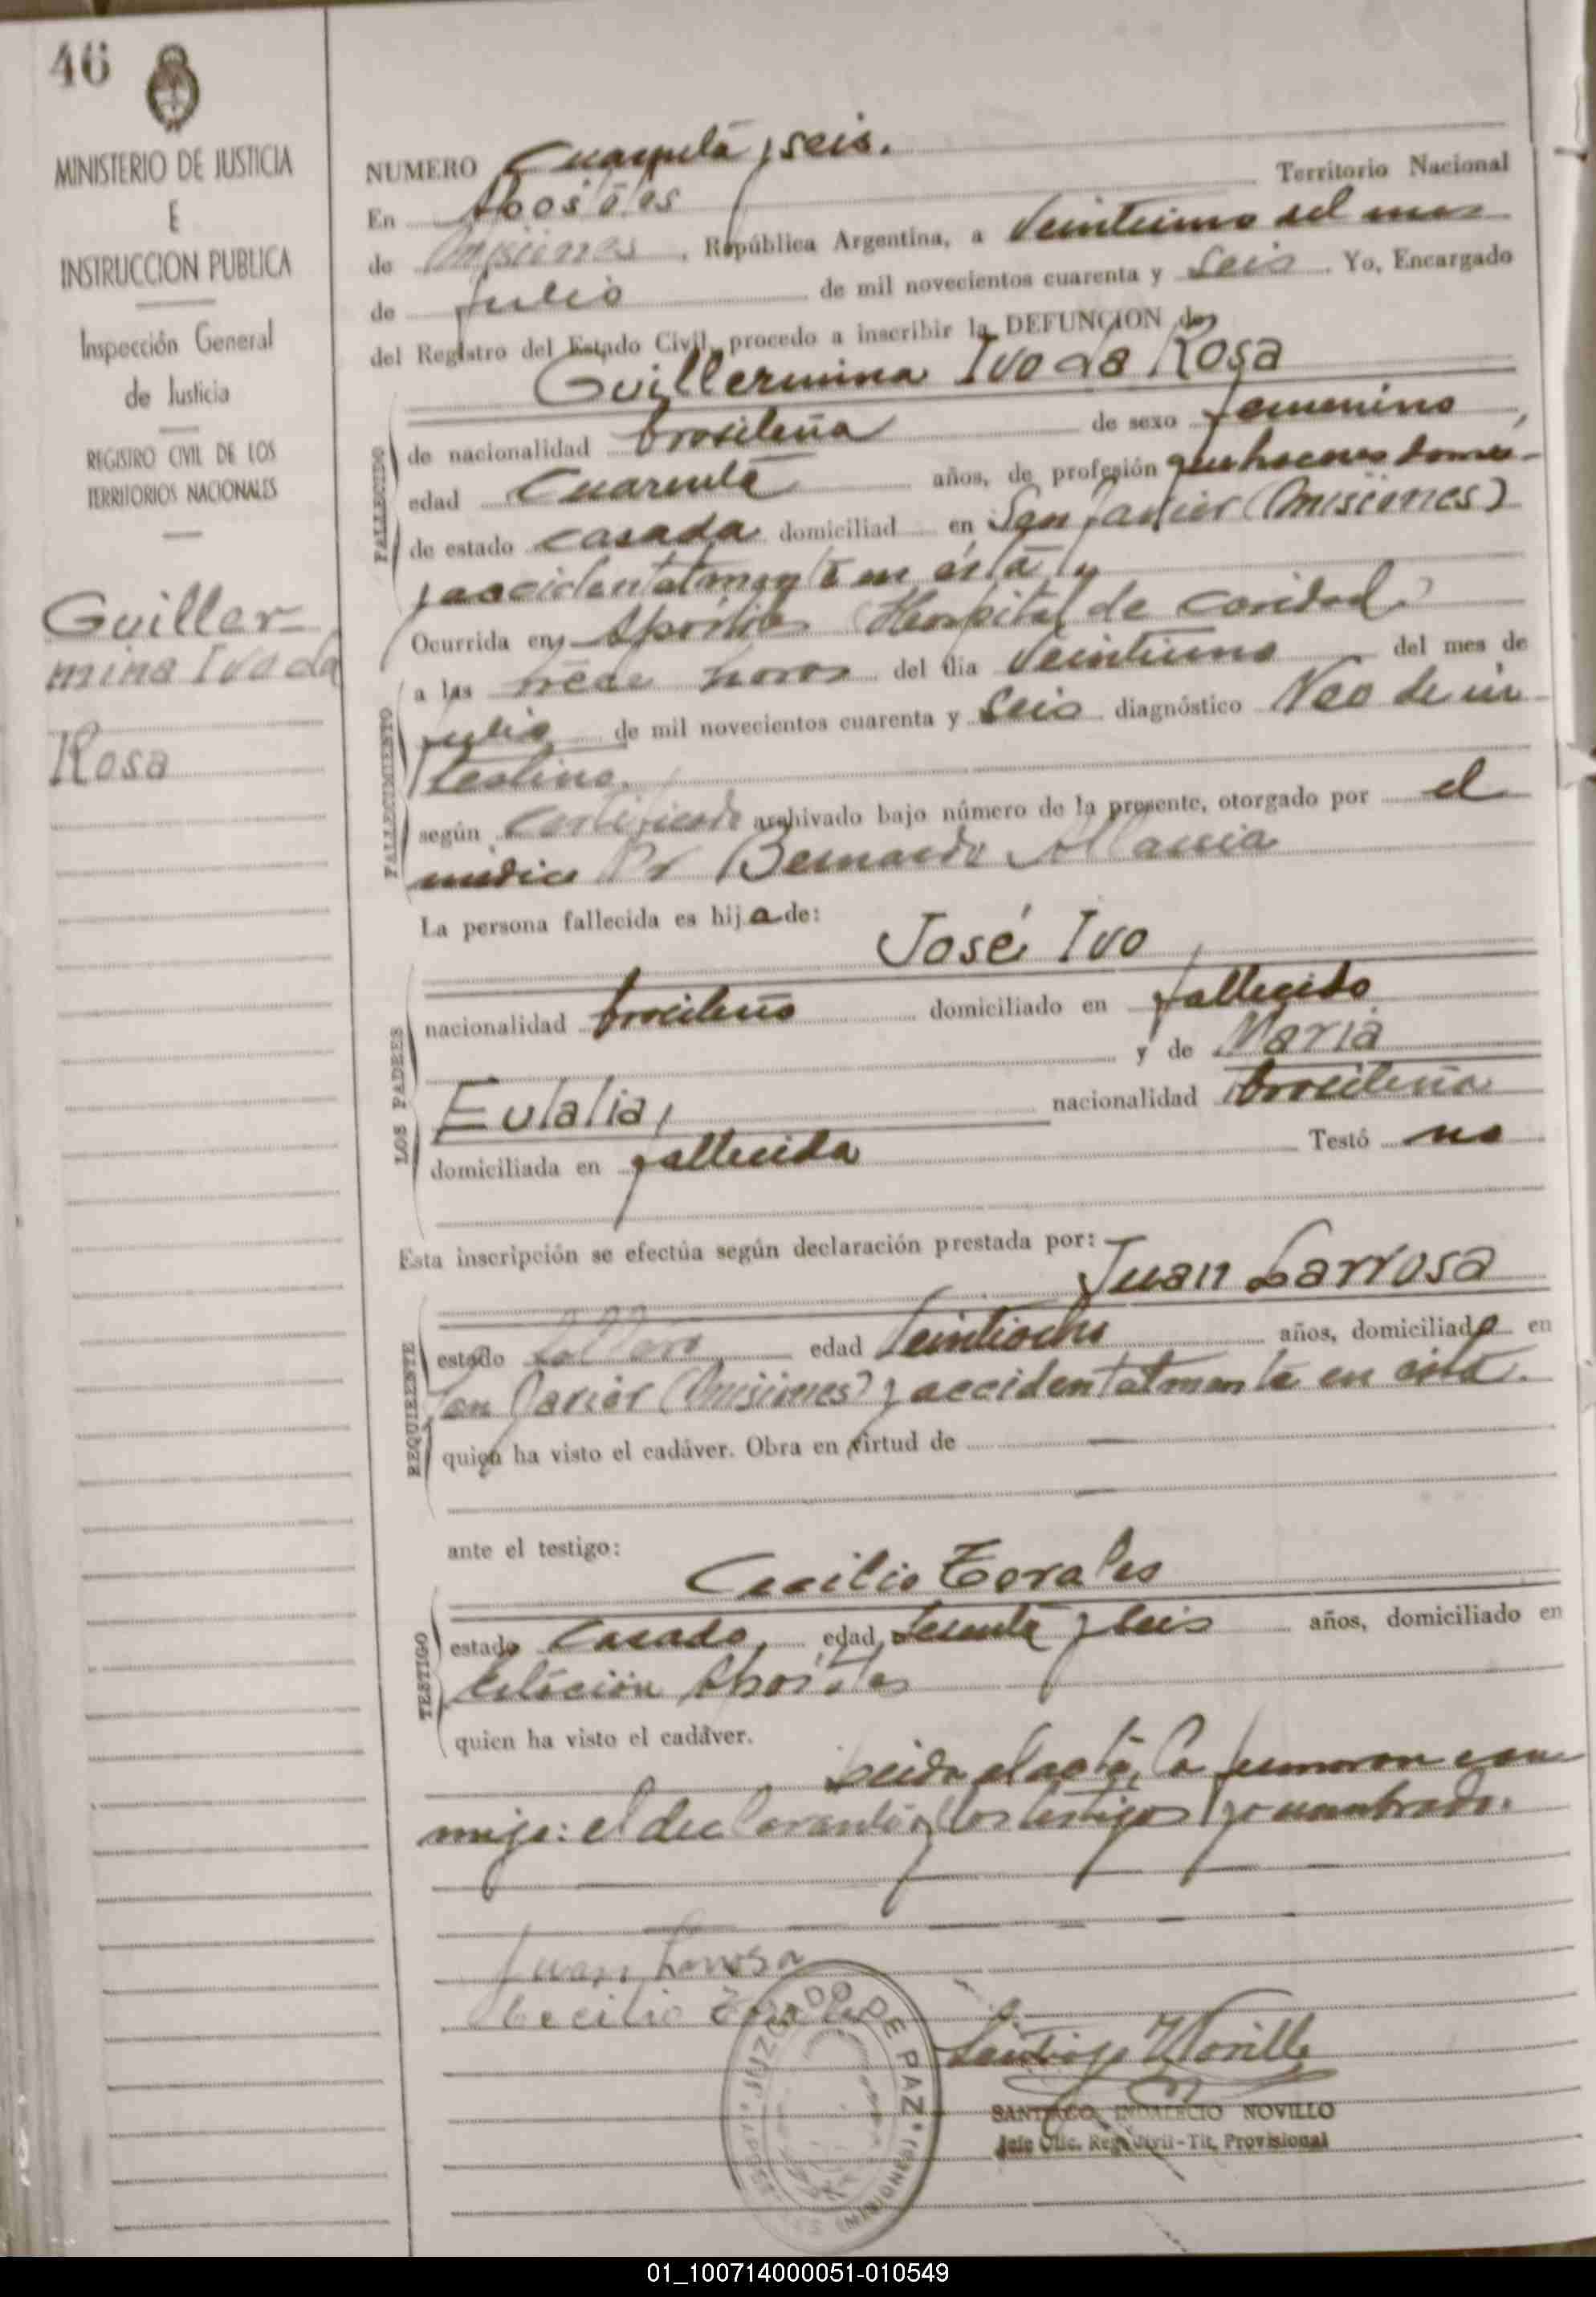 46
MINISTERIO DE JUSTICIA
E
INSTRUCCION PUBLICA
Inspección General
de Justicia
REGISTRO CIVIL DE LOS
TERRITORIOS NACIONALES
Guiller-
mina Ivo da
Rosa
NUMERO Cuarenta y seis.
En Apóstoles Territorio Nacional
de Misiones, República Argentina, a veintiuno del mes
de Julio de mil novecientos cuarenta y seis Yo, Encargado
del Registro del Estado Civil, procedo a inscribir la DEFUNCION de
Guillermina Ivo da Rosa
FALLECIDO
de nacionalidad brasileña de sexo femenino,
edad Cuarenta años, de profesión quehaceres domés-
de estado casada domiciliad en San Javier (Misiones)
y accidentalmente en ésta y
FALLECIMIENTO
Ocurrida en Apóstoles Hospital de Caridad
a las trece horas del día veintiuno del mes de
Julio de mil novecientos cuarenta y seis diagnóstico Neo de in-
testino.
según certificado archivado bajo número de la presente, otorgado por el
médico Dr Bernardo
La persona fallecida es hija de:
LOS PADRES
José Ivo
nacionalidad brasileño domiciliado en fallecido
y de Maria
Eulalia, nacionalidad brasileña
domiciliada en fallecida Testó no
Esta inscripción se efectúa según declaración prestada por:
Juan Larrosa
REQUIRENTE
estado soltero edad veintiocho años, domiciliado en
San Javier (Misiones) y accidentalmente en ésta.
quien ha visto el cadáver. Obra en virtud de
ante el testigo:
Cecilio Torales
TESTIGO
estado casado, edad sesenta y seis años, domiciliado en
Estación Apóstoles
quien ha visto el cadáver.
Leida el acta, la firmaron con-
migo: el declarante y los testigos nombrado.
Juan Larrosa
Cecilio Torales
Santiago Novillo
JUZGADO DE PAZ
(MISIONES)
SANTIAGO INDALECIO NOVILLO
Jefe Ofic. Reg. Civil-Tit. Provisional
01_100714000051-010549